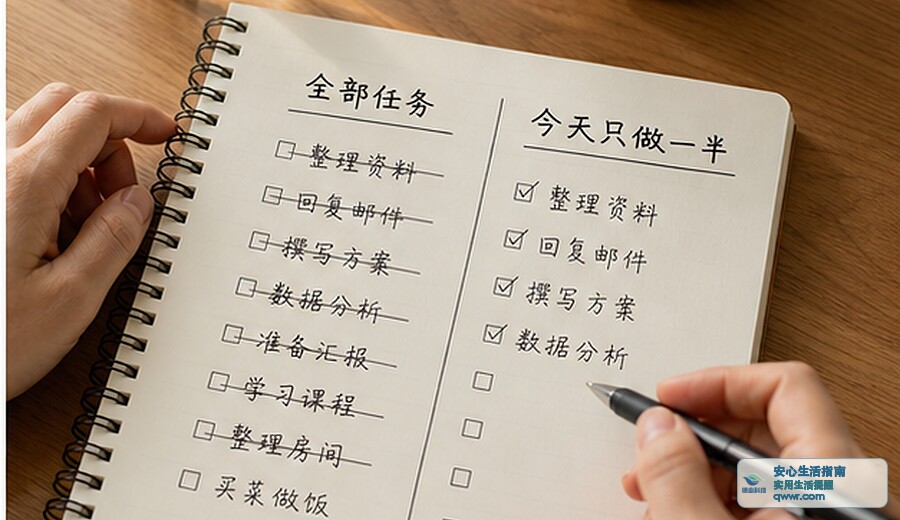 全部任务
整理资料
回复邮件
撰写方案
数据分析
准备汇报
学习课程
整理房间
买菜做饭
今天只做一半
整理资料
回复邮件
撰写方案
数据分析
安心生活指南
实用生活提醒
qwwr.com